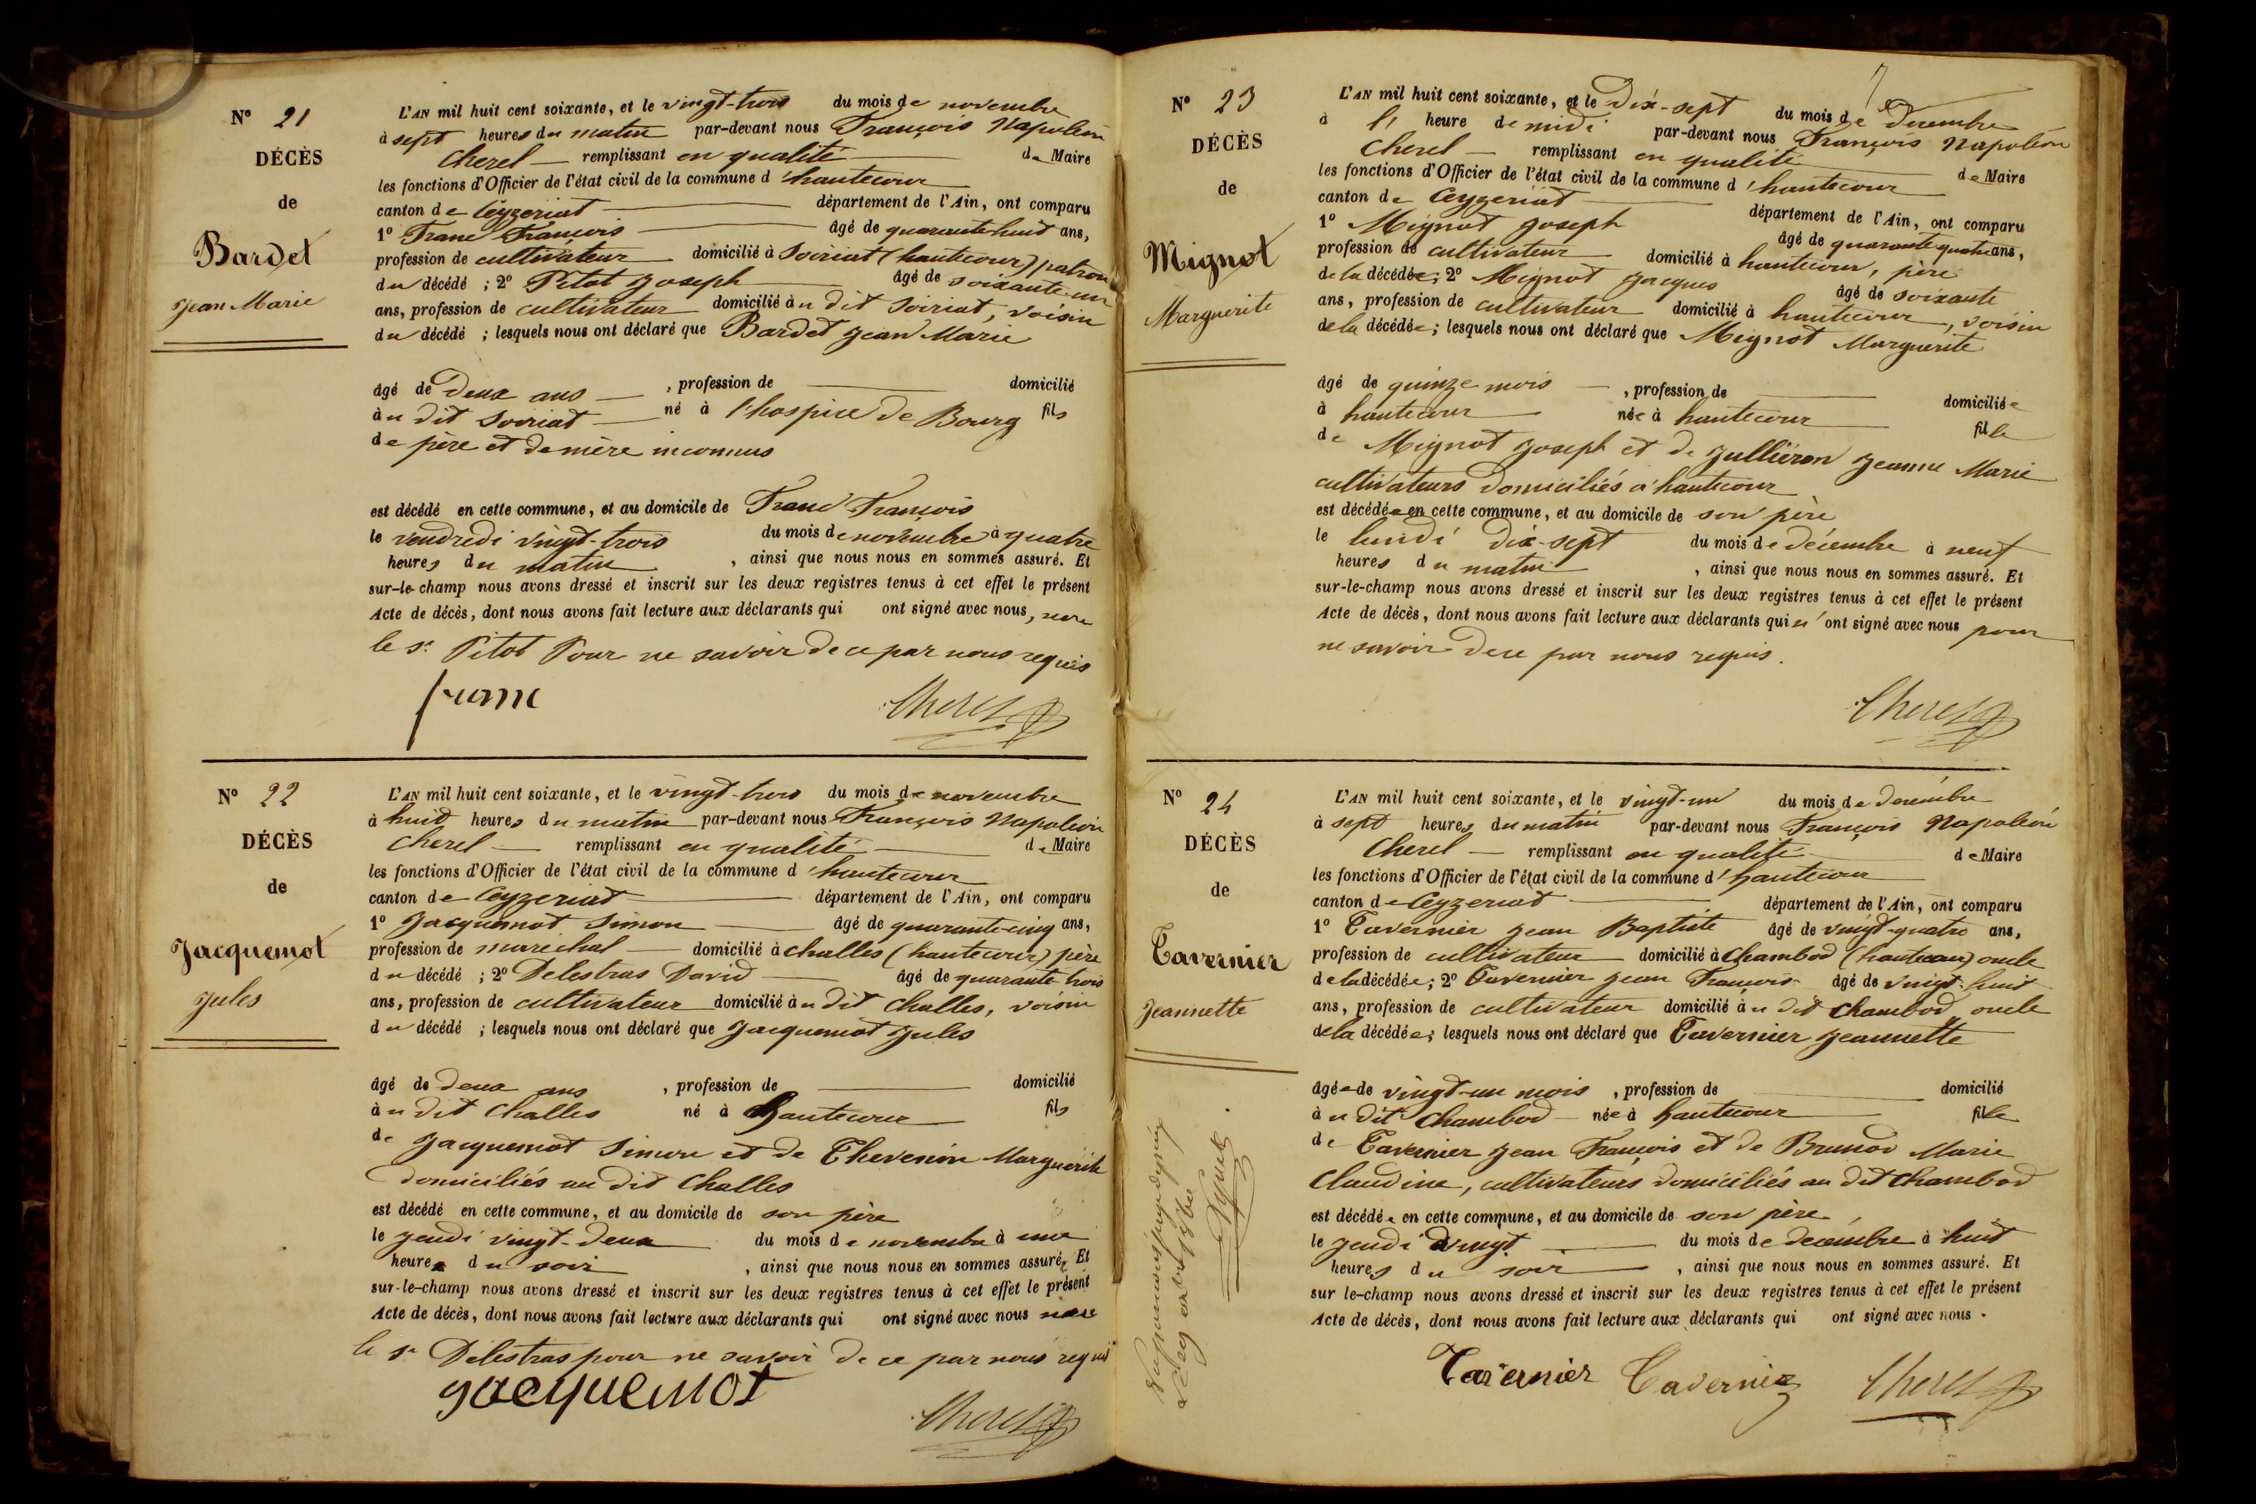 N° 21
DÉCÈS
de
Bardet
Jean Marie
L'AN mil huit cent soixante, et le vingt-trois du mois de novembre
à sept heures du matin par-devant nous François Napoléon
Cherel remplissant en qualité de Maire
les fonctions d'Officier de l'état civil de la commune d'hautecour
canton de Ceyzeriat département de l'Ain, ont comparu
1° Franc François âgé de quarante-huit ans,
profession de cultivateur domicilié à Soiriat (hautecour) patron
du décédé ; 2° Pitot Joseph âgé de soixante-un
ans, profession de cultivateur domicilié au dit Soiriat, voisin
du décédé ; lesquels nous ont déclaré que Bardet Jean Marie
âgé de Deux ans , profession de domicilié
au dit Soiriat né à l'hospice de Bourg fils
de père et de mère inconnus
est décédé en cette commune, et au domicile de Franc François
le vendredi vingt-trois du mois de novembre à quatre
heures du matin , ainsi que nous nous en sommes assuré. Et
sur-le-champ nous avons dressé et inscrit sur les deux registres tenus à cet effet le présent
Acte de décès, dont nous avons fait lecture aux déclarants qui ont signé avec nous, non
le Sr. Pitot Pour ne savoir de ce par nous requis
franc Cherel
N° 22
DÉCÈS
de
Jacquemot
Jules
L'AN mil huit cent soixante, et le vingt-trois du mois de novembre
à huit heures du matin par-devant nous François Napoléon
Cherel remplissant en qualité de Maire
les fonctions d'Officier de l'état civil de la commune d'hautecour
canton de Ceyzeriat département de l'Ain, ont comparu
1° Jacquemot Simon âgé de quarante-cinq ans,
profession de maréchal domicilié à Challes (hautecour) père
du décédé ; 2° Delestras David âgé de quarante-trois
ans, profession de cultivateur domicilié au dit Challes, voisin
du décédé ; lesquels nous ont déclaré que Jacquemot Jules
âgé de deux ans , profession de domicilié
au dit Challes né à hautecour fils
de Jacquemot Simon et de Thevenin Marguerite
domiciliés au dit Challes
est décédé en cette commune, et au domicile de son père
le jeudi vingt-deux du mois de novembre à une
heure du soir , ainsi que nous nous en sommes assuré. Et
sur-le-champ nous avons dressé et inscrit sur les deux registres tenus à cet effet le présent
Acte de décès, dont nous avons fait lecture aux déclarants qui ont signé avec nous non
le Sr Delestras pour ne savoir de ce par nous requis
jacquemot
Cherel
7
N° 23
DÉCÈS
de
Mignot
Marguerite
L'AN mil huit cent soixante, et le Dix-sept du mois de Decembre
à l' heure de midi par-devant nous François Napoléon
Cherel remplissant en qualité de Maire
les fonctions d'Officier de l'état civil de la commune d'hautecour
canton de Ceyzeriat département de l'Ain, ont comparu
1° Mignot Joseph âgé de quarante quatre ans,
profession de cultivateur domicilié à hautecour, père
de la décédée ; 2° Mignot Jacques âgé de soixante
ans, profession de cultivateur domicilié à hautecour, voisin
de la décédée ; lesquels nous ont déclaré que Mignot Marguerite
âgé de quinze mois , profession de domiciliée
à hautecour née à hautecour fille
de Mignot Joseph et de Julliéron Jeanne Marie
cultivateurs domiciliés à hautecour
est décédée en cette commune, et au domicile de son père
le lundi dix-sept du mois de décembre à neuf
heures du matin , ainsi que nous nous en sommes assuré. Et
sur-le-champ nous avons dressé et inscrit sur les deux registres tenus à cet effet le présent
Acte de décès, dont nous avons fait lecture aux déclarants qui n'ont signé avec nous pour
ne savoir de ce par nous requis.
Cherel
N° 24
DÉCÈS
de
Tavernier
Jeannette
L'AN mil huit cent soixante, et le vingt-un du mois de decembre
à sept heures du matin par-devant nous François Napoléon
Cherel remplissant en qualité de Maire
les fonctions d'Officier de l'état civil de la commune d'hautecour
canton de Ceyzeriat département de l'Ain, ont comparu
1° Tavernier Jean Baptiste âgé de vingt-quatre ans,
profession de cultivateur domicilié à Chambod (hautecour) oncle
de la décédée ; 2° Tavernier Jean François âgé de vingt-huit
ans, profession de cultivateur domicilié au dit Chambod, oncle
de la décédée ; lesquels nous ont déclaré que Tavernier Jeannette
âgée de vingt-un mois , profession de domicilié
au dit Chambod née à hautecour fille
de Tavernier Jean François et de Brunod Marie
Claudine, cultivateurs domiciliés au dit Chambod
est décédée en cette commune, et au domicile de son père
le jeudi vingt du mois de decembre à huit
heures du soir , ainsi que nous nous en sommes assuré. Et
sur le-champ nous avons dressé et inscrit sur les deux registres tenus à cet effet le présent
Acte de décès, dont nous avons fait lecture aux déclarants qui ont signé avec nous.
Tavernier Tavernier Cherel